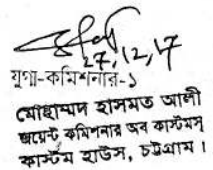 27,12,17
যুগ্ম-কমিশনার-১
মোহাম্মদ হাসমত আলী
জয়েন্ট কমিশনার অব কাস্টমস্
কাস্টম হাউস, চট্টগ্রাম।